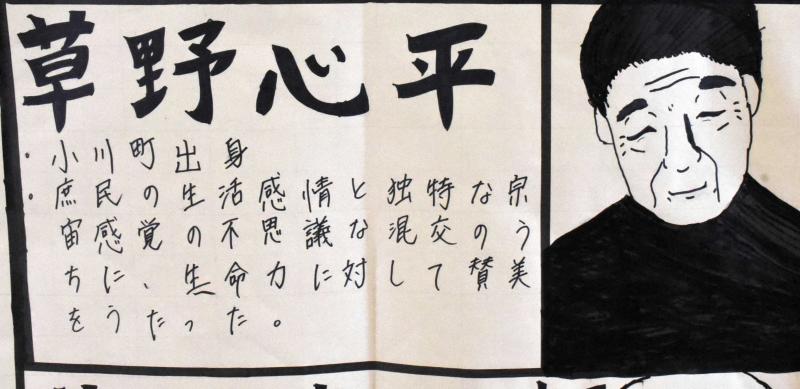 草野心平
・小川町出身
・庶民の生活感情と独特な宇
宙感覚の不思議な混交のう
ちに、生命力に対して賛美
をうたった。